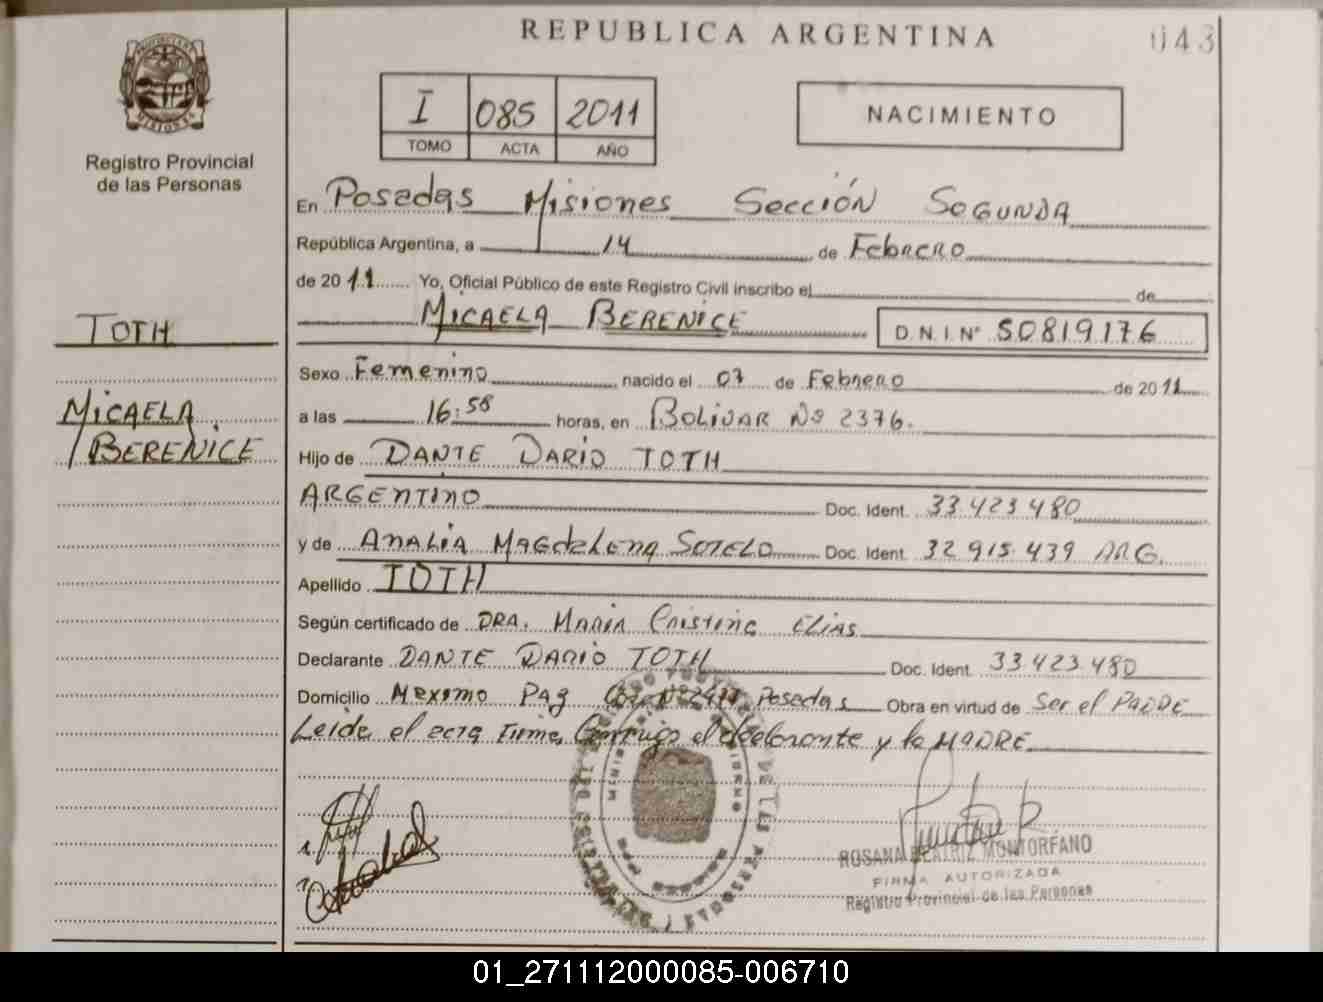 REPUBLICA ARGENTINA
043
PROVINCIA DE
MISIONES
Registro Provincial
de las Personas
I 085 2011
TOMO ACTA AÑO
NACIMIENTO
En Posadas Misiones Sección Segunda
República Argentina, a 14 de Febrero
de 2011 Yo, Oficial Público de este Registro Civil inscribo el de
MICAELA BERENICE D.N.I. Nº 50819176
TOTH
MICAELA
BERENICE
Sexo Femenino nacido el 07 de Febrero de 2011
a las 16:58 horas, en BOLIVAR Nº 2376.
Hijo de DANTE DARIO TOTH
ARGENTINO Doc. Ident. 33.423.480
y de ANALIA MAGdaLena SOTELO Doc. Ident. 32.915.439 ARG.
Apellido TOTH
Según certificado de DRA. MARIA Cristina ELIAS
Declarante DANTE DARIO TOTH Doc. Ident. 33.423.480
Domicilio Posadas Obra en virtud de Ser el PADRE
Leida el acta Firma Conmigo el declarante y la MADRE
ROSANA BEATRIZ MONTORFANO
FIRMA AUTORIZADA
Registro Provincial de las Personas
01_271112000085-006710